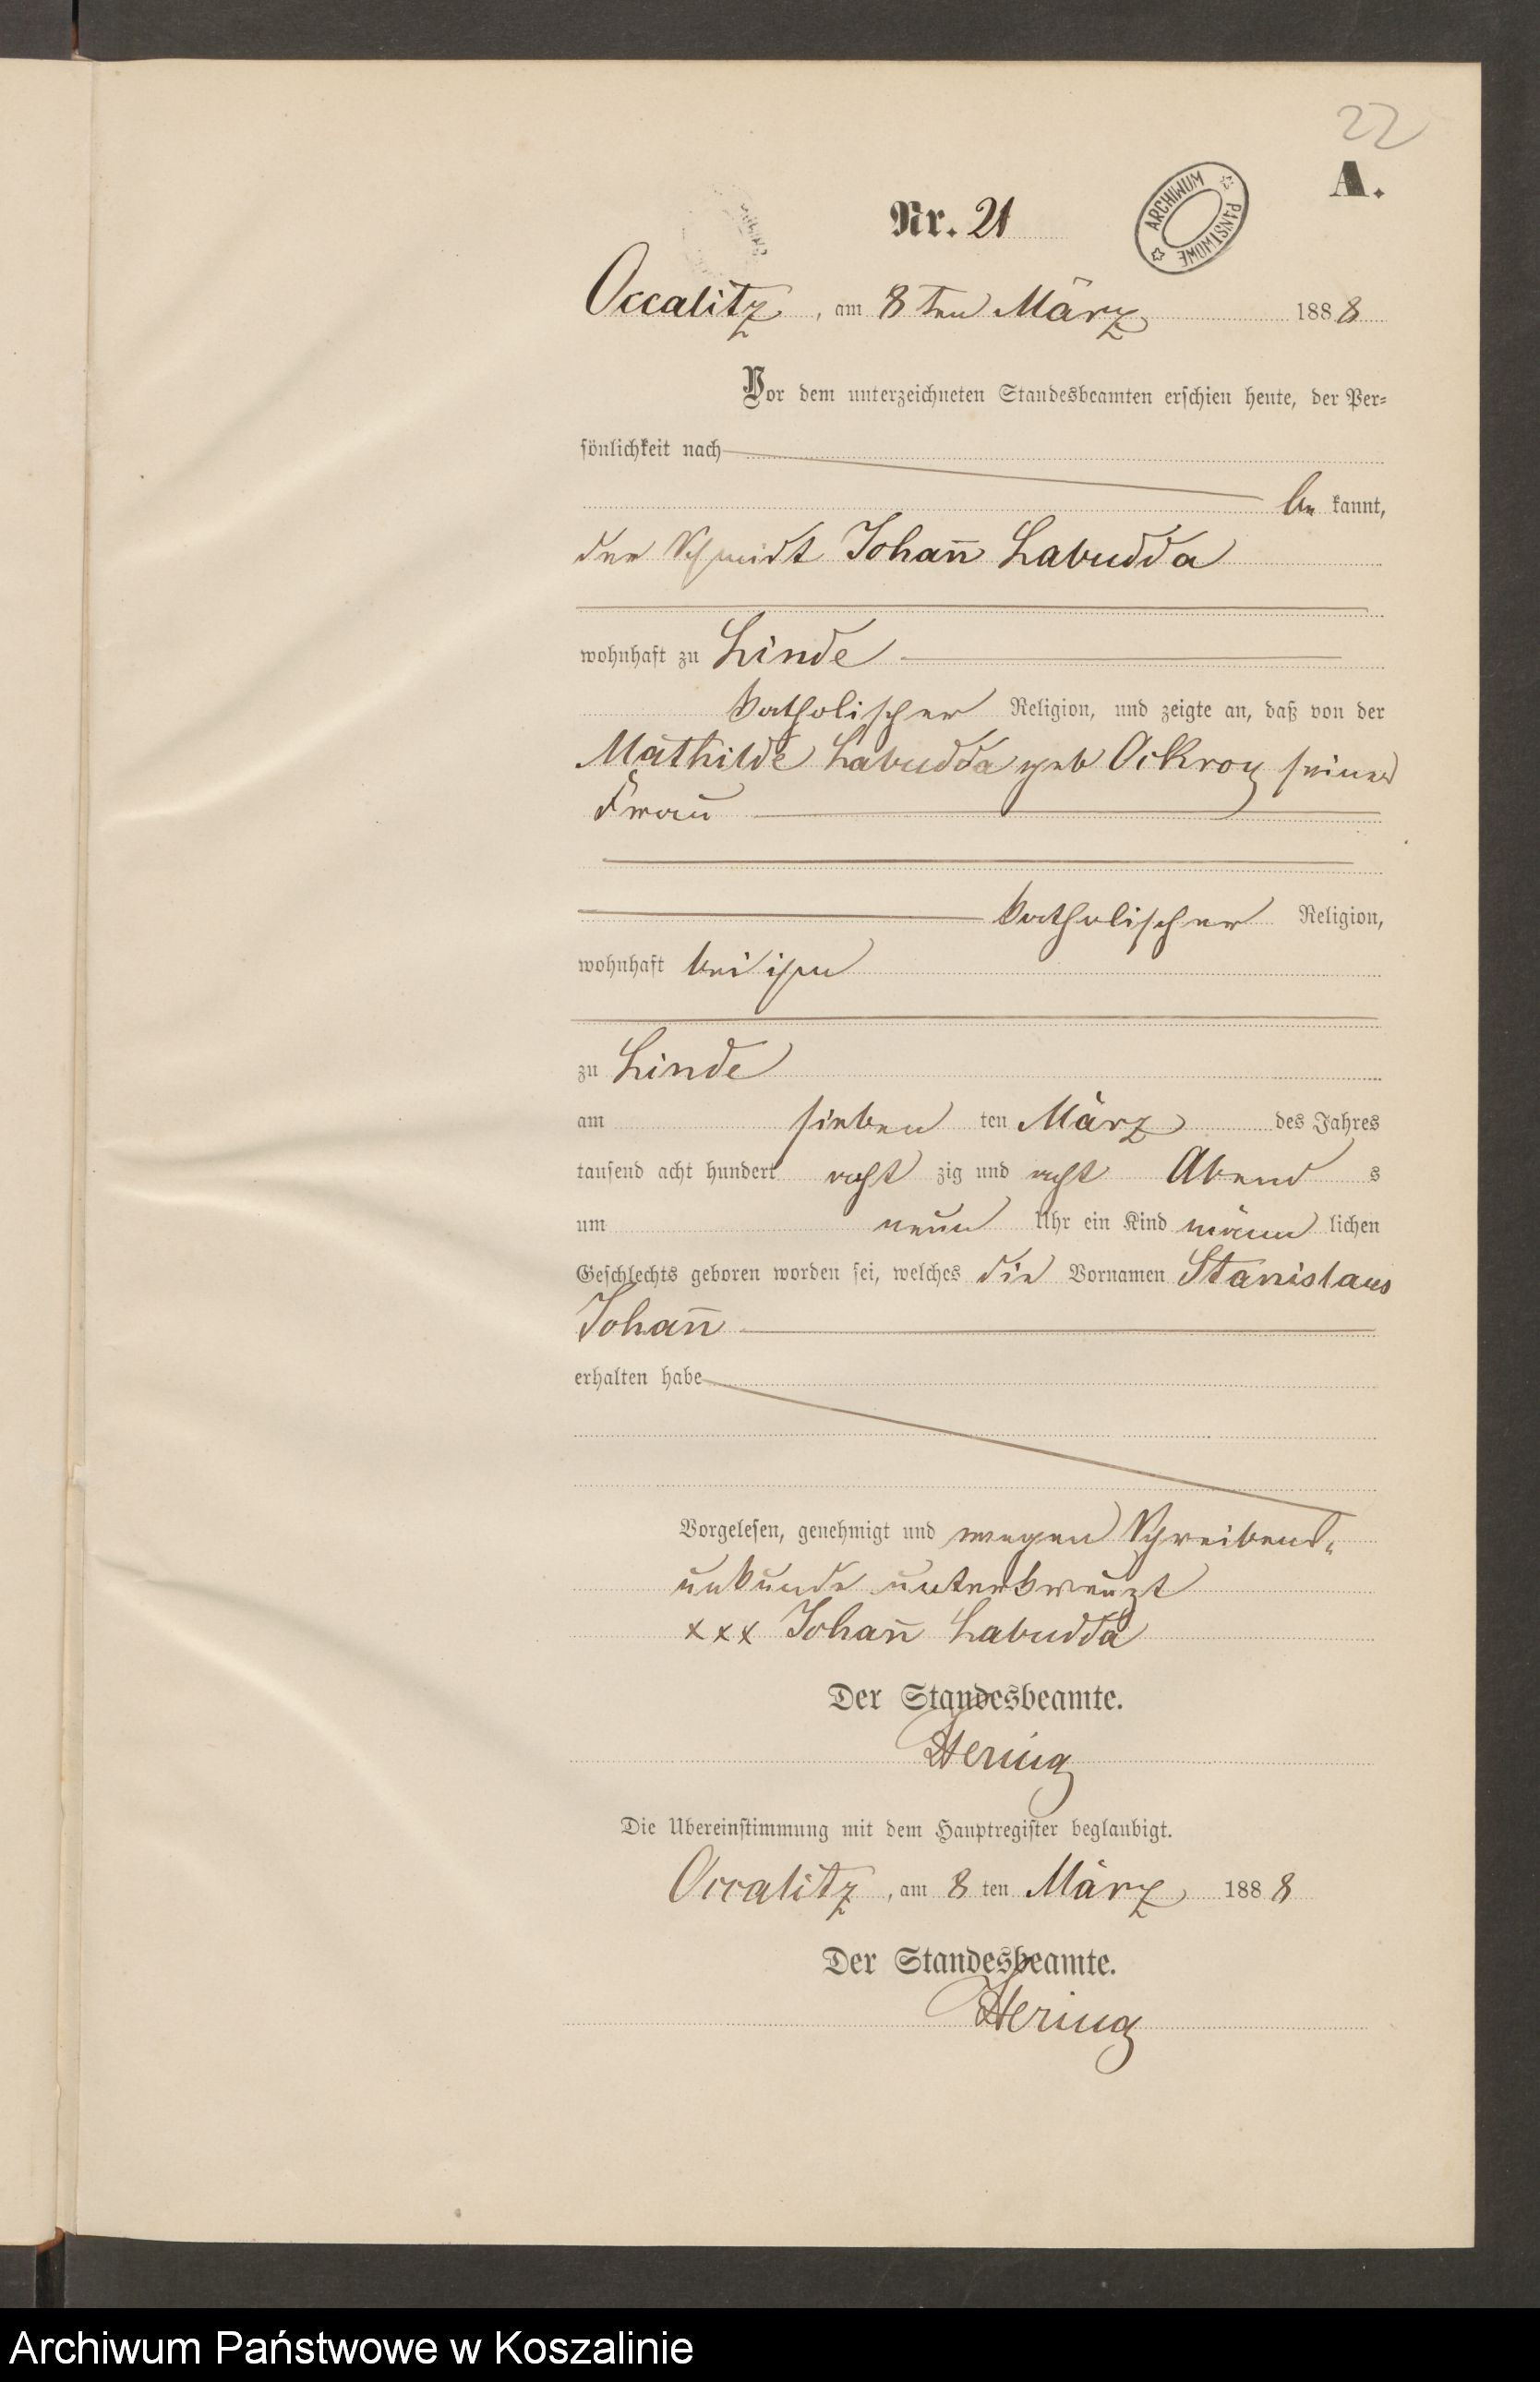 22
A.
Nr. 21
ARCHIWUM PAŃSTWOWE
Occalitz, am 8ten März 1888
Vor dem unterzeichneten Standesbeamten erschien heute, der Per-
sönlichkeit nach
be kannt,
der Schmidt Johan̅ Labudda
wohnhaft zu Linde
katholischer Religion, und zeigte an, daß von der
Mathilde Labudda geb Ockroy seiner
Frau
katholischer Religion,
wohnhaft bei ihm
zu Linde
am sieben ten März des Jahres
tausend acht hundert acht zig und acht Abend s
um neun Uhr ein Kind männ lichen
Geschlechts geboren worden sei, welches die Vornamen Stanislaus
Johan̅
erhalten habe
Vorgelesen, genehmigt und wegen Schreibens-
unkunde unterkreuzt
xxx Johan̅ Labudda
Der Standesbeamte.
Hering
Die Übereinstimmung mit dem Hauptregister beglaubigt.
Occalitz, am 8 ten März 1888
Der Standesbeamte.
Hering
Archiwum Państwowe w Koszalinie